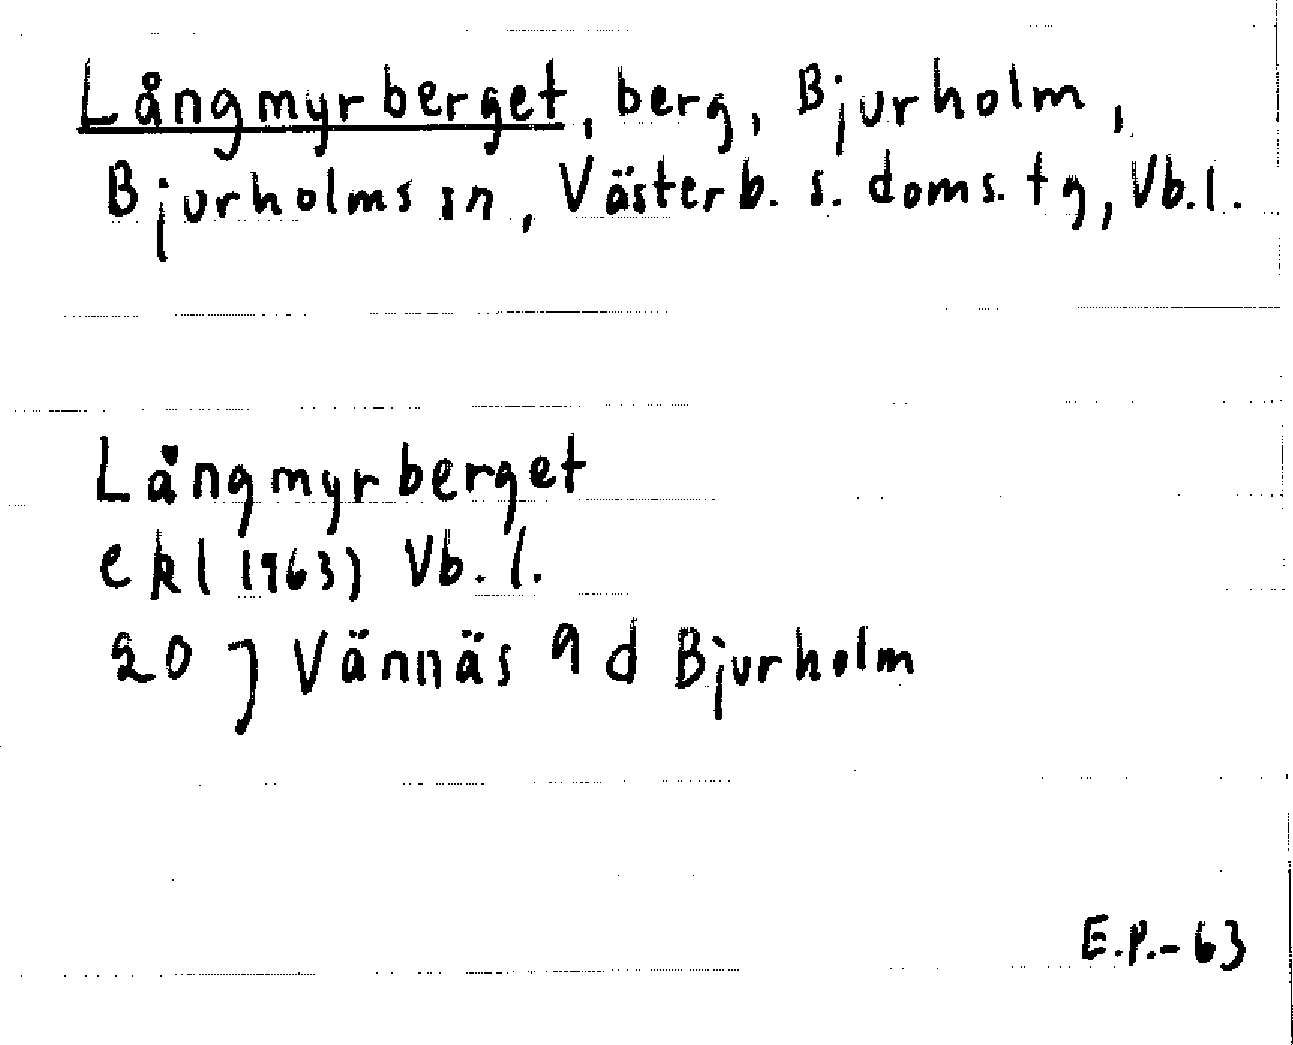 Långmyrberget, berg, Bjurholm,
Bjurholms sn, Västerb. s. doms. tg, Vb.l.
Långmyrberget
ekl (1963) Vb. l.
20 J Vännäs 9 d Bjurholm
E.P.-63